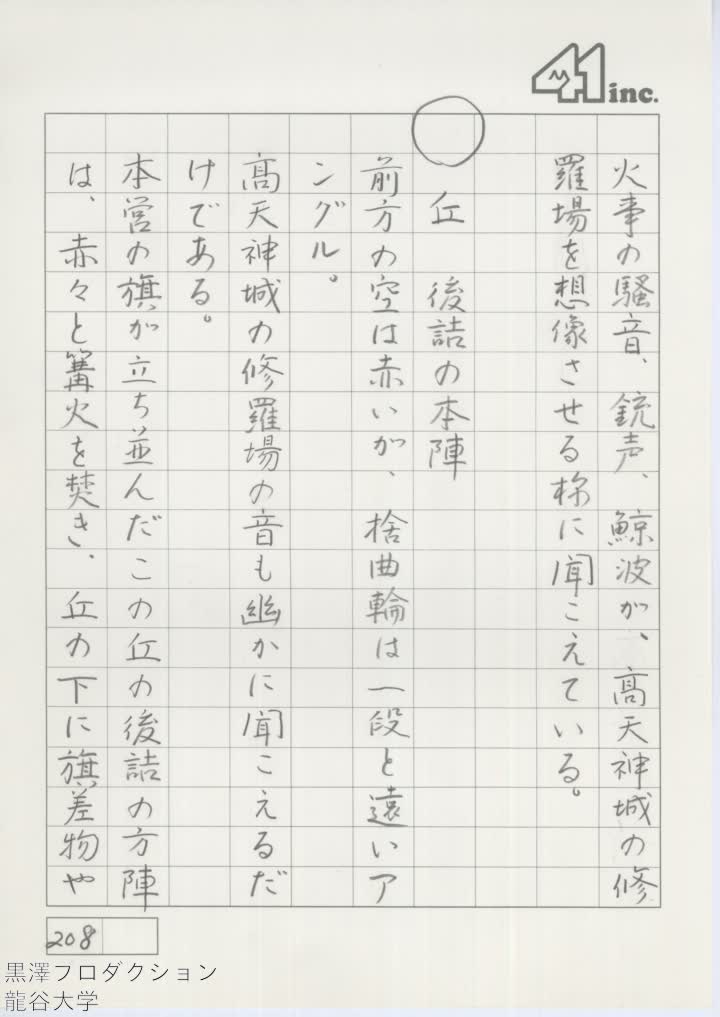 41 inc.
火事の騒音、銃声、鯨波が、高天神城の修
羅場を想像させる様に聞こえている。
丘 後詰の本陣
前方の空は赤いが、捨曲輪は一段と遠いア
ングル。
高天神城の修羅場の音も幽かに聞こえるだ
けである。
本営の旗が立ち並んだこの丘の後詰の方陣
は、赤々と篝火を焚き、丘の下に旗差物や
208
黒澤プロダクション
龍谷大学